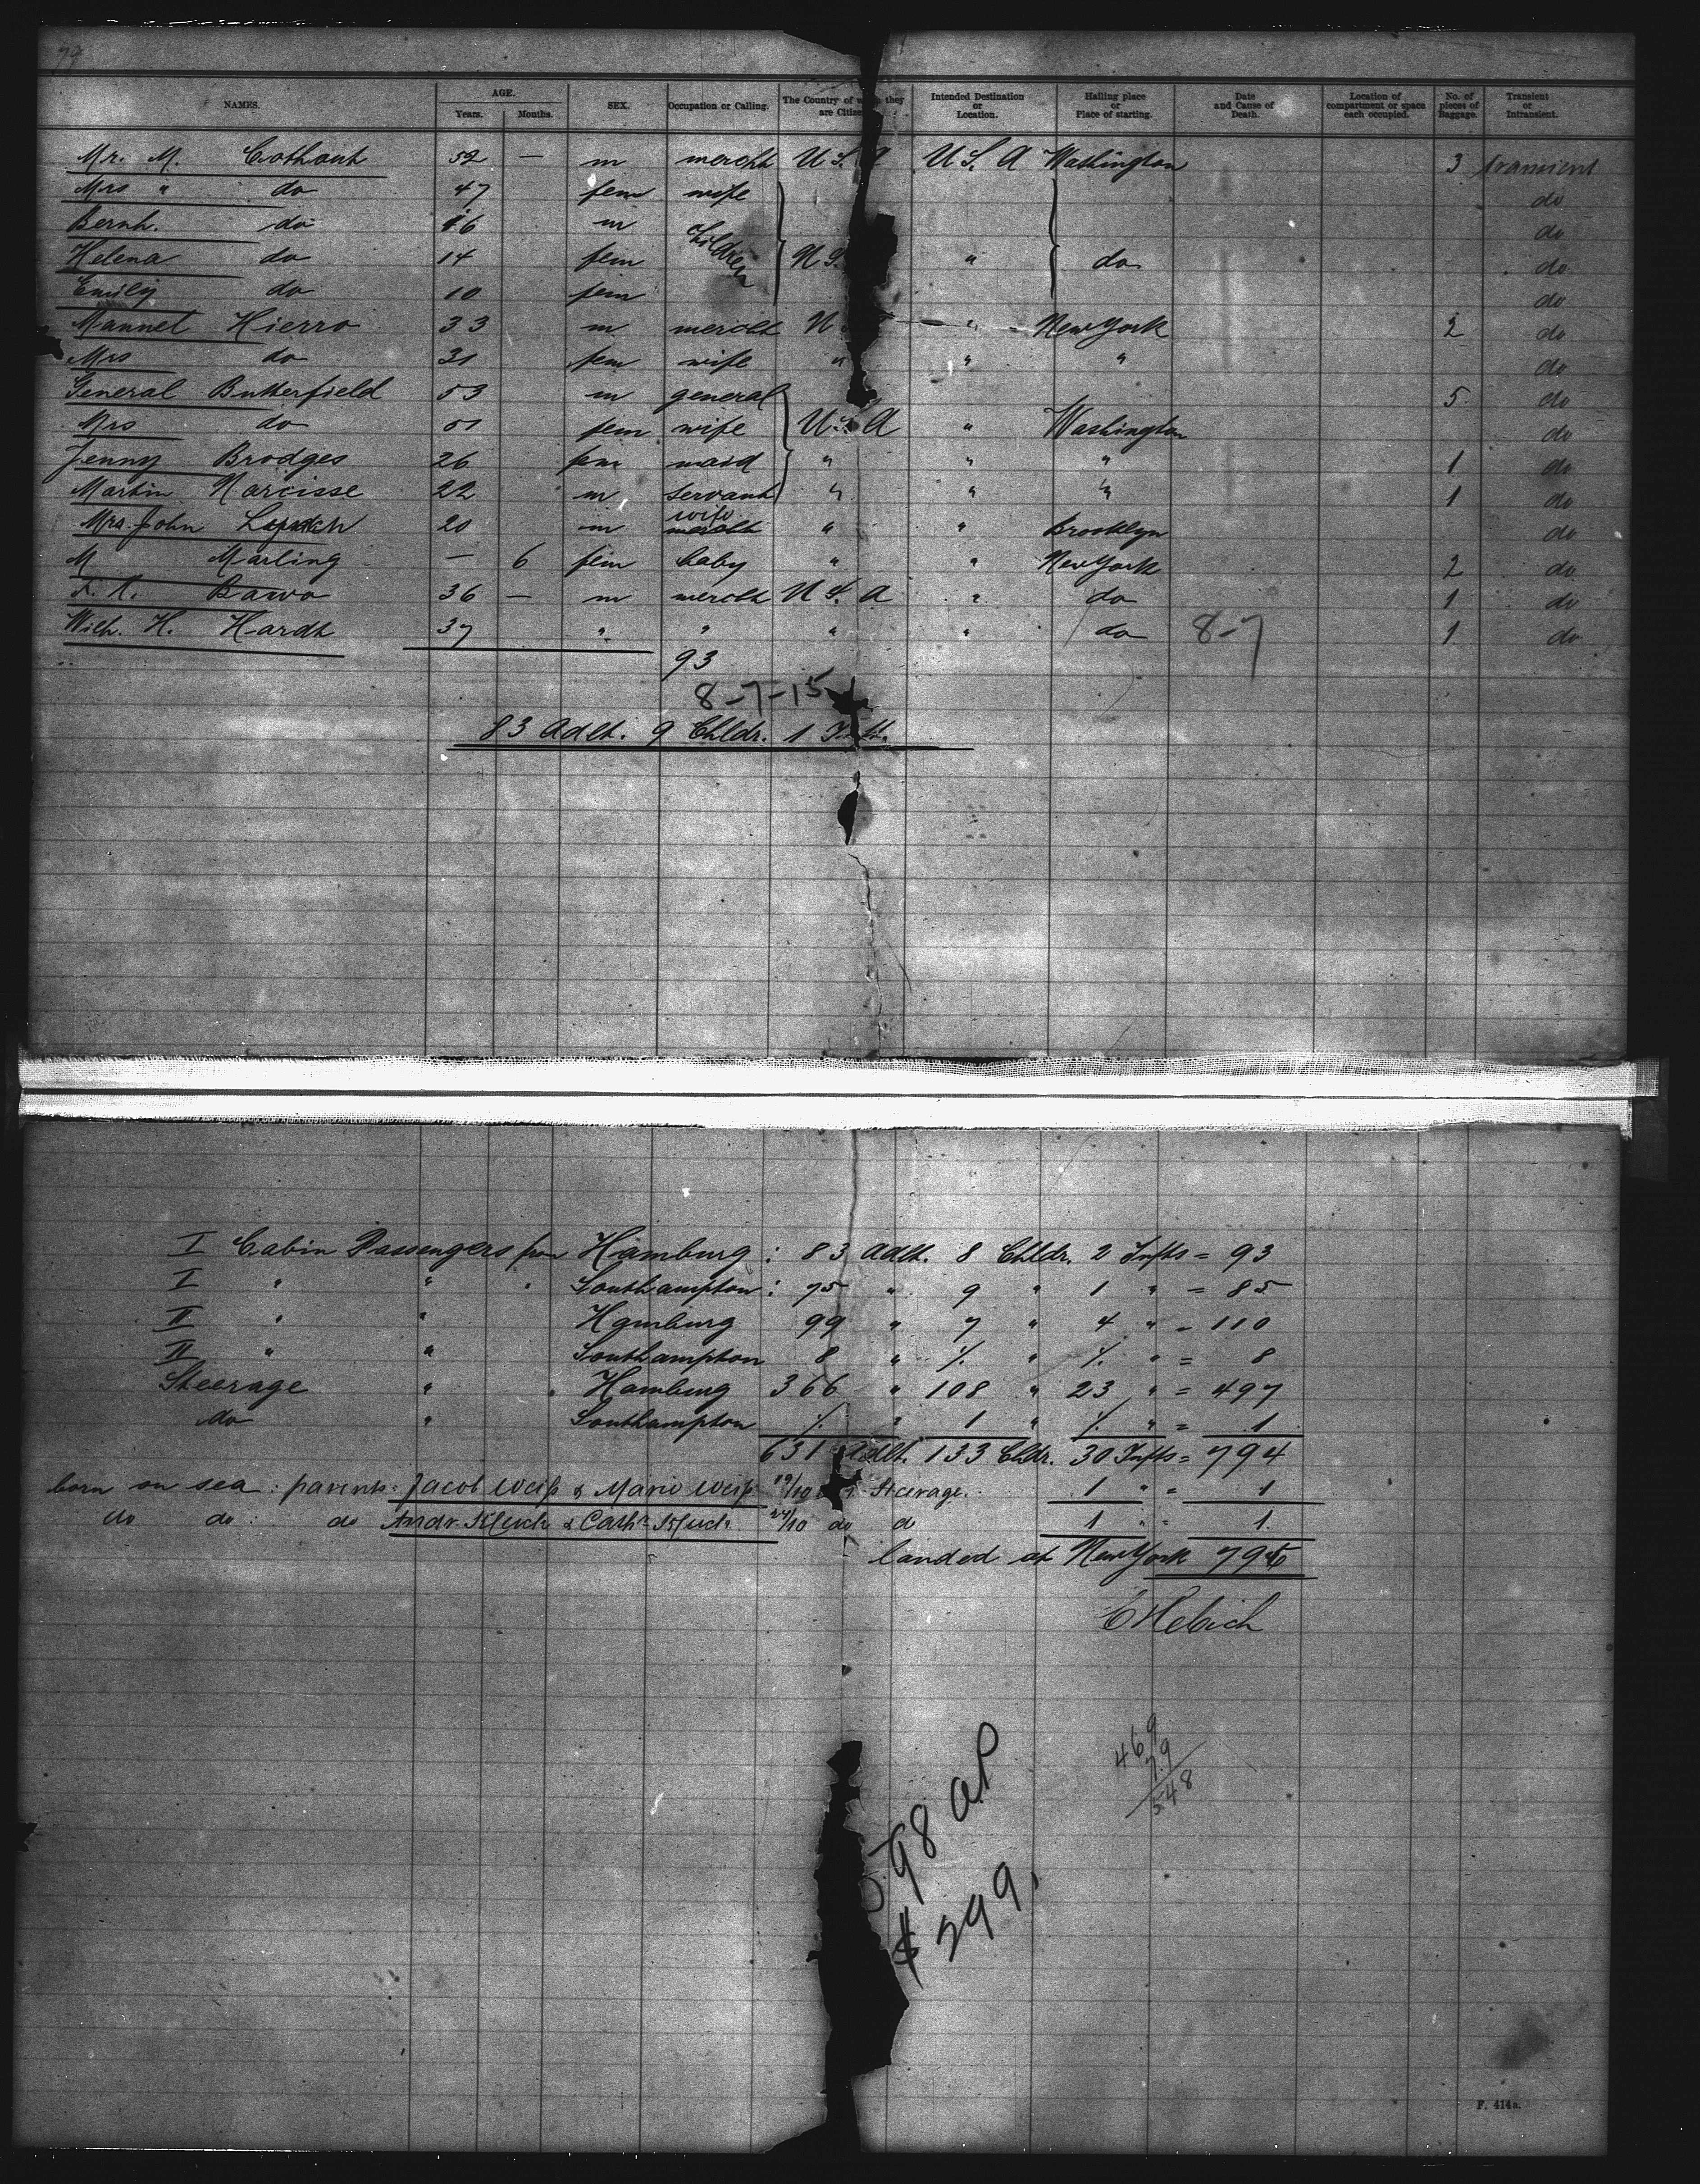 79
NAMES. AGE. Years. Months. SEX. Occupation or Calling. The Country of w they are Citize Intended Destination or Location. Hailing place or Place of starting. Date and Cause of Death. Location of compartment or space each occupied. No. of pieces of Baggage. Transient or Intransient.
Mr. M. 52 — m mercht U S. A U S. A Washington 3 transient
Mrs " do 47 fem wife do
Bernh. do 16 m children do
Helena do 14 fem U S. " do do
Emily do 10 fem do
Manuel Hierro 33 m mercht U " New York 2 do
Mrs do 31 fem wife " " " do
General Butterfield 53 m general 5 do
Mrs do 51 fem wife U S. A " Washington do
Jenny Brodges 26 fem maid " " " 1 do
Martin Narcisse 22 m servant " " " 1 do
Mrs. John Lynch 20 m wife mercht " " Brooklyn do
M Marling — 6 fem baby " " New York 2 do
F. R. Bawo 36 — m mercht U S. A " do 1 do
Wilh. H. Hardt 37 " " " " do 8-7 1 do
93
8-7-15
83 Adlt. 9 Chldr. 1 Inft.
I Cabin Passengers from Hamburg: 83 Adlt. 8 Chldr. 2 Infts = 93
I " " " Southampton: 75 " 9 " 1 " = 85
II " " Hamburg 99 " 7 " 4 " = 110
II " " Southampton 8 " % " % " = 8
Steerage " " Hamburg 366 " 108 " 23 " = 497
do " Southampton % " 1 " % " = 1
631 Adlt. 133 Chldr. 30 Infts = 794
born on sea: parents: Jacob Weiß & Marie Weiß 19/10 Steerage. 1 " = 1
do do: do Andr. & Cath. 24/10 do d 1 " = 1.
landed at New York 796
98 al
$ 299,
469
79
548
F. 414a.